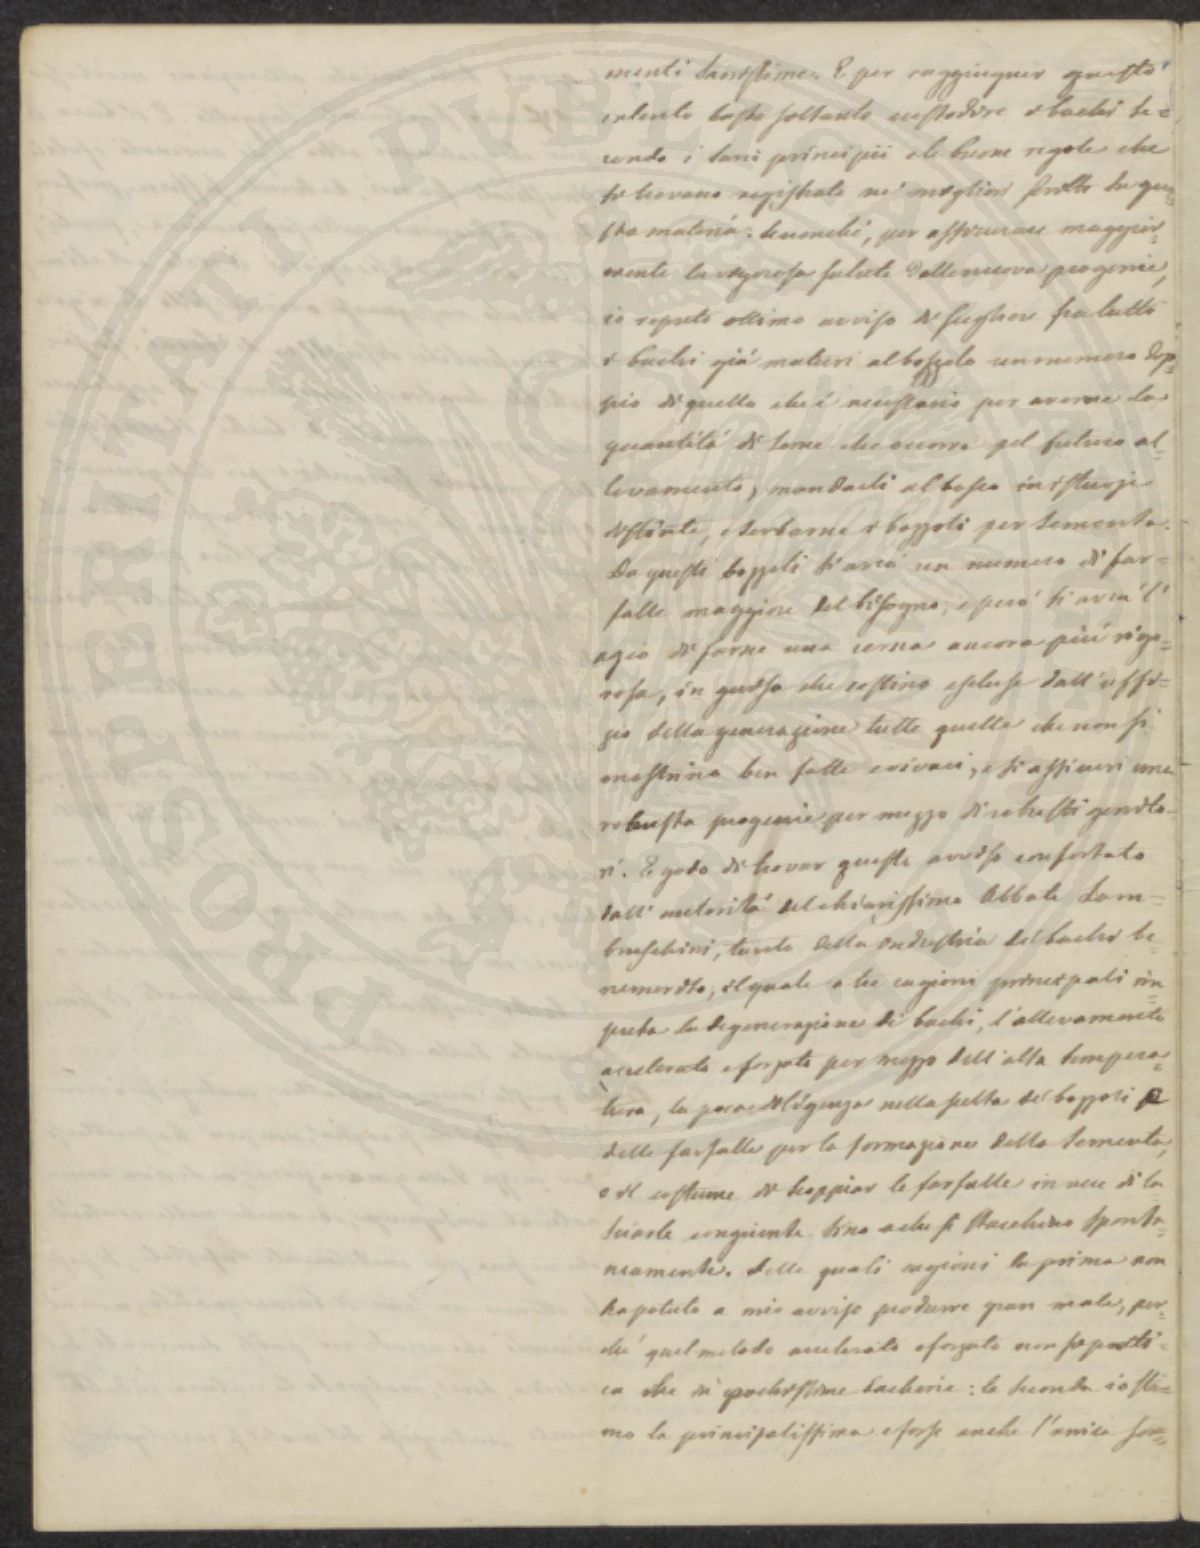 menti sanissime. E per raggiunger questo
intento basta soltanto custodire i bachi se=
condo i sani principii e le buone regole che
si trovano registrate ne' migliori scritti su que=
sta materia. Avvegnachè, per assicurare maggior=
mente la vigorosa salute della nuova progenie,
io reputo ottimo avviso di scegliere fra tutti
i bachi già maturi al bozzolo un numero dop=
pio di quello che è necessario per averne la
quantità di seme che occorre pel futuro al=
levamento, mandarli al bosco in istuoje
distinte, e serbarne i bozzoli per sementa.
Da questi bozzoli si avrà un numero di far=
falle maggiore del bisogno, e però si avrà l'
agio di farne una cerna ancora più rigo=
rosa, in guisa che restino escluse dall'uffi=
zio della generazione tutte quelle che non si
mostrino ben fatte e vivaci, e si assicuri una
robusta progenie per mezzo di robusti genito=
ri. E godo di trovar questo avviso confortato
dall'autorità del chiarissimo Abbate Lam=
bruschini, tanto della industria dei bachi be=
nemerito, il quale a tre cagioni principali im=
puta la degenerazione di bachi, l'allevamento
accelerato e forzato per mezzo dell'alta tempera=
tura, la poca diligenza nella scelta dei bozzoli e
delle farfalle per la formazione della sementa,
e il costume di scoppiar le farfalle in vece di la=
sciarle congiunte sino a che si stacchino sponta=
neamente. Delle quali cagioni la prima non
ha potuto a mio avviso produrre gran male, per=
chè quel metodo accelerato e forzato non si prati=
ca che in pochissime bacherie: la seconda io sti=
mo la principalissima e forse anche l'unica sor=